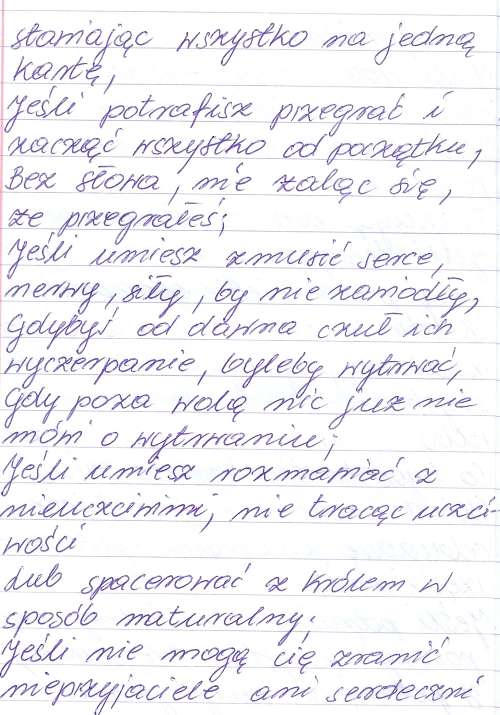 stawiając wszystko na jedną
kartę,
Jeśli potrafisz przegrać i
zacząć wszystko od początku,
Bez słowa, nie żaląc się,
że przegrałeś;
Jeśli umiesz zmusić serce,
nerwy, siły, by nie zawiodły,
Gdybyś od dawna czuł ich
wyczerpanie, byleby wytrwać,
Gdy poza wolą nic już nie
mówi o wytrwaniu;
Jeśli umiesz rozmawiać z
nieuczciwymi, nie tracąc uczci-
wości
Lub spacerować z królem w
sposób naturalny.
Jeśli nie mogą cię zranić
nieprzyjaciele ani serdeczni